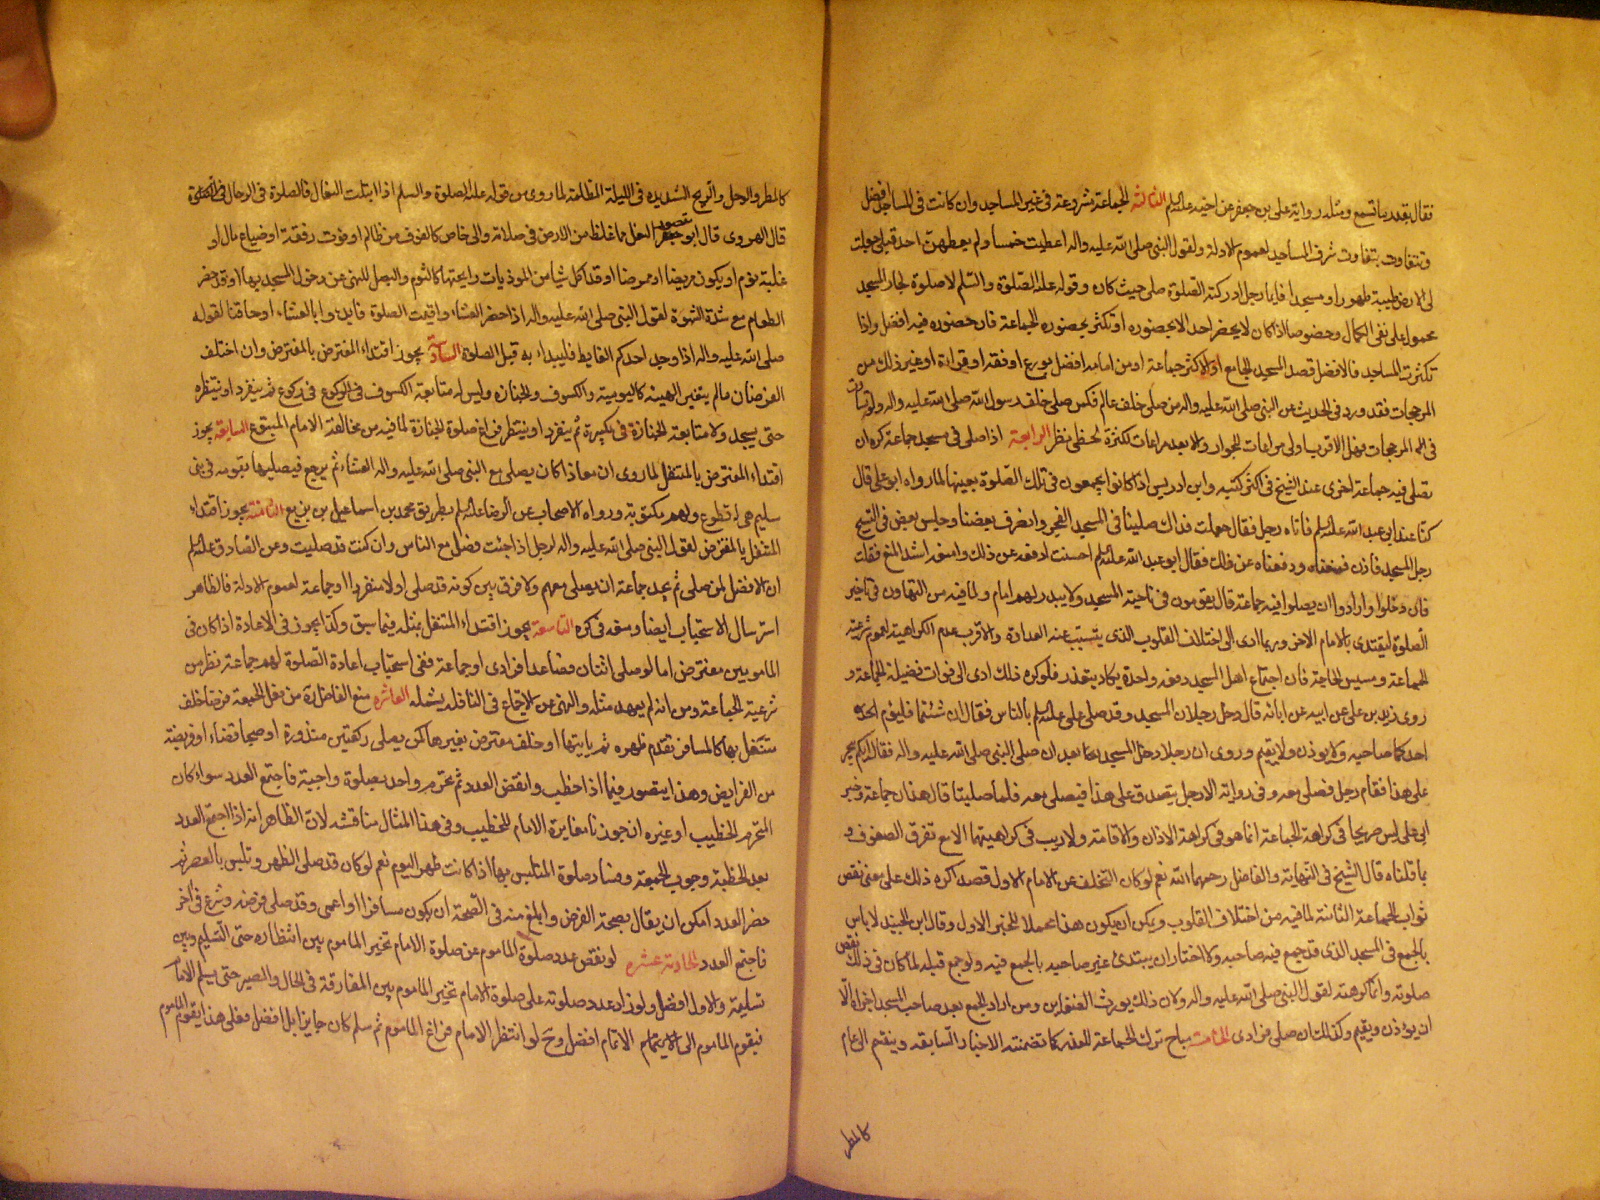 فقال بقدر ما تسمع ومثله رواية على بن جعفر عن اخيه عليه السلم الثالثة الجماعة مشروعة فى غير المساجد وان كانت فى المساجد افضل
وتتفاوت بتفاوت شرف المساجد لعموم الادلة ولقول النبى صلى الله عليه واله اعطيت خمسا ولم يعطهن احد قبلى جعلت
لى الارض طيبة طهورا ومسجدا فايما رجل ادركته الصلوة صلى حيث كان وقوله عليه الصلوة والسلم لا صلوة لجار المسجد
محمول على نفى الكمال وخصوصا اذا كان لا يحضر احد الا بحضوره او تكثر بحضوره الجماعة فان حضوره فيه افضل واذا
تكثرت المساجد فالافضل قصد المسجد الجامع او الاكثر جماعة او من امامه افضل بورع او فقه او قراءة او غير ذلك من
المرجحات فقد ورد فى الحديث عن النبى صلى الله عليه واله من صلى خلف عالم فكمن صلى خلف رسول الله صلى الله عليه واله ولو تساوت
فى المرجحات فهل الاقرب اولى مراعات للجوار ولا بعد مراعات لكثرة الخطى نظر الرابعة اذا صلى فى مسجد جماعة كره ان
تصلى فيه جماعة اخرى عند الشيخ فى اكثر كتبه وابن ادريس اذا كانوا يجمعون فى تلك الصلوة بعينها لما رواه ابو على قال
كنا عند ابى عبد الله عليه السلم فاتاه رجل فقال جعلت فداك صلينا فى المسجد الفجر وانصرف بعضنا وجلس بعض فى التسبيح
رجل المسجد فاذن فمنعناه ودفعناه عن ذلك فقال ابو عبد الله عليه السلم احسنت ادفعه عن ذلك وامنعه اشد المنع فقلت
فان دخلوا وارادوا ان يصلوا فيه جماعة قال يقومون فى ناحية المسجد ولا يبدر لهم امام ولما فيه من التهاون فى تاخير
الصلوة ليقتدى بالامام الاخر وربما ادى الى اختلاف القلوب الذى يتسبب عنه العداوة والاقرب عدم الكراهية لعموم شرعية
الجماعة ومسيس الحاجة فان اجتماع اهل المسجد دفعة واحدة يكاد يتعذر فلو كره ذلك ادى الى فوات فضيلة الجماعة و
روى زيد بن على عن ابيه عن ابائه قال دخل رجلان المسجد وقد صلى على عليه السلم بالناس فقال ان شئتما فليؤم احد
احدكما صاحبه ولا يؤذن ولا يقيم وروى ان رجلا دخل المسجد بعد ان صلى النبى صلى الله عليه واله فقال ايكم يتجر
على هذا فقام رجل فصلى معه وفى رواية الا رجل يتصدق على هذا فيصلى معه فلما صليا قال هذان جماعة وخبر
ابى على ليس صريحا فى كراهة الجماعة انما هو فى كراهة الاذان والاقامة ولا ريب فى كراهيتهما الا مع تفرق الصفوف و
بما قلناه قال الشيخ فى النهاية والفاضل رحمهما الله نعم لو كان التخلف عن الامام الاول قصدا كره ذلك على معنى نقص
ثواب الجماعة الثانية لما فيه من اختلاف القلوب ويمكن ان يكون هذا محملا للخبر الاول وقال ابن الجنيد لا باس
بالجمع فى المسجد الذى قد جمع فيه صاحبه ولا اختار ان يبتدئ غير صاحبه بالجمع فيه ولو جمع قبله لما كان فى ذلك نقص
صلوته وانما كرهته لقول النبى صلى الله عليه واله ولان ذلك يورث الضغاين ومن اراد الجمع بعد صاحب المسجد اجزاه الا
ان يؤذن ويقيم وكذلك ان صلى فرادى الخامسة يباح ترك الجماعة للعذر كما تضمنته الاخبار السابقة وينقسم الى عام
كالمطر
كالمطر والوحل والريح الشديدة فى الليلة المظلمة لما روى من قوله عليه الصلوة والسلم اذا ابتلت النعال فالصلوة فى الرحال
قال الهروى قال ابو منصور النعل ما غلظ من الارض فى صلابة والى خاص كالخوف من ظالم او فوت رفقة او ضياع مال او
غلبة نوم او يكون مريضا او ممرضا او قد اكل شيا من الموذيات رايحتها كالثوم والبصل للنهى عن دخول المسجد بها او قد حضر
الطعام مع شدة الشهوة لقول النبى صلى الله عليه واله اذا حضر العشاء واقيمت الصلوة فابدءوا بالعشاء او حاقنا لقوله
صلى الله عليه واله اذا وجد احدكم الغايط فليبداء به قبل الصلوة السادسة يجوز اقتداء المفترض بالمفترض وان اختلف
الفرضان ما لم يتغير الهيئة كاليومية والكسوف والجنازة وليس له متابعة الكسوف فى الركوع فى ركوع ثم ينفرد او ينتظره
حتى يسجد ولا متابعة الجنازة فى تكبيرة ثم ينفرد او ينتظر فراغ صلوة الجنازة لما فيه من مخالفة الامام المتبوع السابعة يجوز
اقتداء المفترض بالمتنفل لما روى ان معاذا كان يصلى مع النبى صلى الله عليه واله العشاء ثم يرجع فيصليها بقومه فى بنى
سليم هى له تطوع ولهم مكتوبة ورواه الاصحاب عن الرضا عليه السلم بطريق محمد بن اسماعيل بن بزيع الثامنة يجوز اقتداء
المتنفل بالمفترض لقول النبى صلى الله عليه واله لرجل اذا جئت فصل مع الناس وان كنت قد صليت وعن الصادق عليه السلم
ان الافضل لمن صلى ثم يجد جماعة ان يصلى معهم ولا فرق بين كونه قد صلى اولا منفردا او جماعة لعموم الادلة فالظاهر
استرسال الاستحباب ايضا ومنعه فى كره التاسعة يجوز اقتداء المتنفل بمثله فيما سبق وكذا يجوز فى الاعادة اذا كان فى
المامومين مفترض اما لو صلى اثنان فصاعدا فرادى او جماعة ففى استحباب اعادة الصلوة لهم جماعة نظر من
شرعية الجماعة ومن انه لم يعهد مثله والنهى عن الاجتماع فى النافلة يشمله العاشرة منع الفاضل من فعل الجمعة فرضا خلف
متنفل بها كالمسافر تقدم ظهره ثم ياتيها او خلف مفترض بغيرها كمن يصلى ركعتين منذورة او صبحا قضاء او فريضة
من الفرايض وهذا يتصور فيما اذا خطب وانفض العدد ثم تحرم واحد بصلوة واجبة فاجتمع العدد سواء كان
المتحرم الخطيب او غيره ان جوزنا مغايرة الامام للخطيب وفى هذا المثال مناقشة لان الظاهر انه اذا اجتمع العدد
بعد الخطبة وجوب الجمعة وفساد صلوة المتلبس بها اذا كانت ظهر اليوم نعم لو كان قد صلى الظهر وتلبس بالعصر ثم
حضر العدد امكن ان يقال بصحة الفرض وابلغ منه فى الصحة ان يكون مسافرا او اعمى وقد صلى فرضه وشرع فى اخر
فاجتمع العدد الحادية عشرة لو نقص عدد صلوة الماموم عن صلوة الامام تخير الماموم بين انتظاره حتى التسليم وبين
تسليمه والاول افضل ولو زاد عدد صلوته على صلوة الامام تخير الماموم بين المفارقة فى الحال والصبر حتى يسلم الامام
فيقوم الماموم الى الاتمام افضل وح لو انتظر الامام فراغ الماموم ثم سلم كان جايزا بل افضل فعلى هذا يقوم الماموم